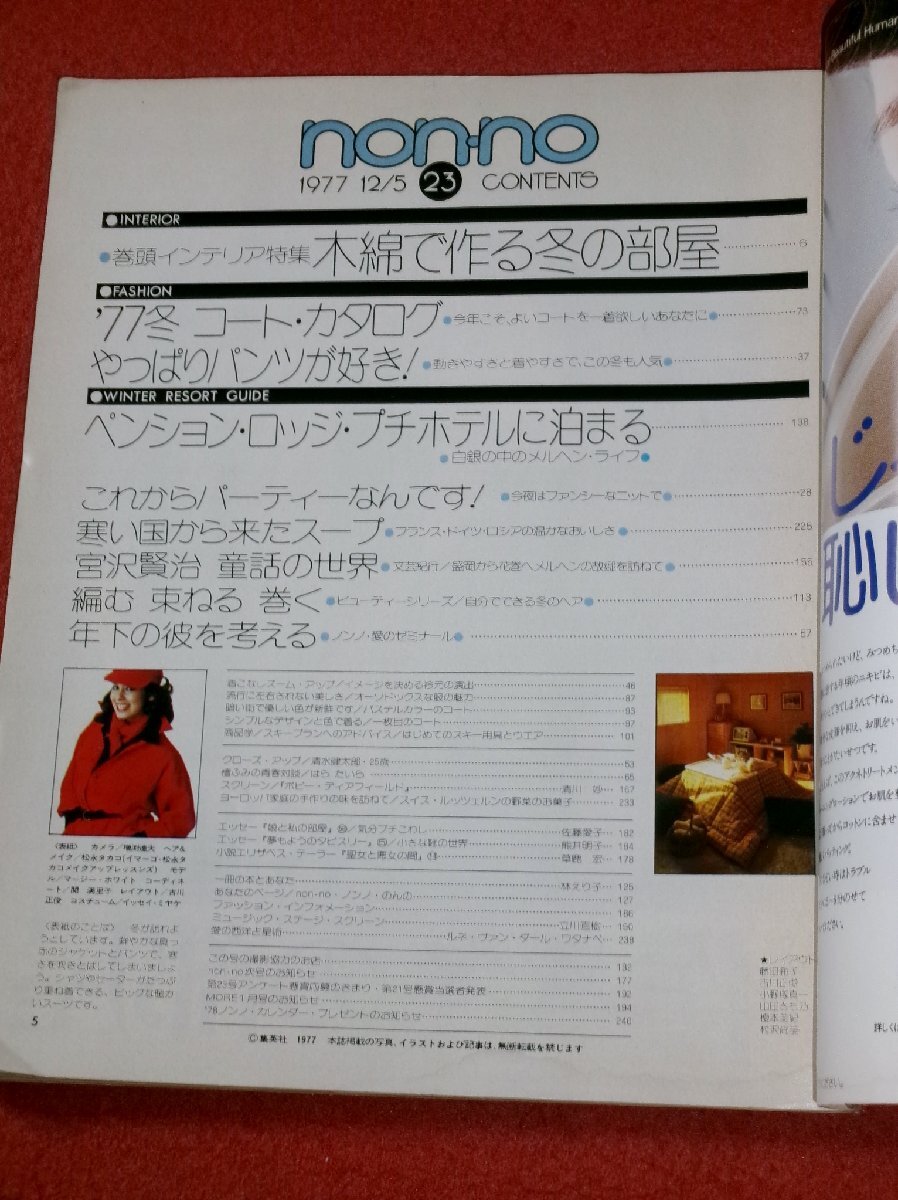 non·no
1977 12/5 23 CONTENTS
●INTERIOR
●巻頭インテリア特集 木綿で作る冬の部屋 6
●FASHION
'77冬 コート・カタログ ●今年こそ、よいコートを一着欲しいあなたに● 73
やっぱりパンツが好き! ●動きやすさと着やすさで、この冬も人気● 37
●WINTER RESORT GUIDE
ペンション・ロッジ・プチホテルに泊まる 138
●白銀の中のメルヘン・ライフ●
これからパーティーなんです! ●今夜はファンシーなニットで● 28
寒い国から来たスープ ●フランス・ドイツ・ロシアの温かなおいしさ● 225
宮沢賢治 童話の世界 ●文芸紀行/盛岡から花巻へメルヘンの故郷を訪ねて●
編む 束ねる 巻く ●ビューティーシリーズ/自分でできる冬のヘア● 113
年下の彼を考える ●ノンノ・愛のゼミナール● 57
着こなしズーム・アップ/イメージを決める衿元の演出 46
流行に左右されない美しさ/オーソドックスな服の魅力 87
暗い街で優しい色が新鮮です/パステルカラーのコート 93
シンプルなデザインと色で着る/一枚目のコート 97
商品学/スキープランへのアドバイス/はじめてのスキー用具とウエア 101
クローズ・アップ/清水健太郎・25歳 53
檀ふみの青春対談/はら たいら 65
スクリーン/『ボビー・ディアフィールド』 167
ヨーロッパ家庭の手作りの味を訪ねて/スイス・ルッツェルンの野菜のお菓子 233
エッセー『娘と私の部屋』 気分プチこわし 佐藤愛子 182
エッセー『夢もようのタピスリー』 小さな靴の世界 熊井明子 184
小説エリザベス・テーラー『聖女と悪女の間』 草鹿 宏 178
一冊の本とあなた 林えり子 125
あなたのページ/non・no・ノンノ・のんの 127
ファッション・インフォメーション 186
ミュージック・ステージ・スクリーン 立川直樹 190
愛の西洋占星術 ルネ・ヴァン・ダール・ワタナベ 238
この号の撮影協力のお店 132
non・no次号のお知らせ 177
第23号アンケート懸賞応募のきまり・第21号懸賞当選者発表 193
MORE1月号のお知らせ 194
'78ノンノ・カレンダー・プレゼントのお知らせ 240
〈表紙〉 カメラ/ ヘア&
メイク/松永タカコ(イマーゴ・松永タ
カコメイクアップレッスンズ) モデ
ル/マージー・ホワイト コーディネ
ート/関 満里子 レイアウト/吉川
正俊 コスチューム/イッセイ・ミヤケ
〈表紙のことば〉 冬が訪れよ
うとしています。鮮やかな真っ
赤のジャケットとパンツで、寒
さを吹きとばしてしまいましょ
う。シャツやセーターがたっぷ
り重ね着できる、ビッグな暖か
いスーツです。
★レイアウト
5
©集英社 1977 本誌掲載の写真、イラストおよび記事は、無断転載を禁じます